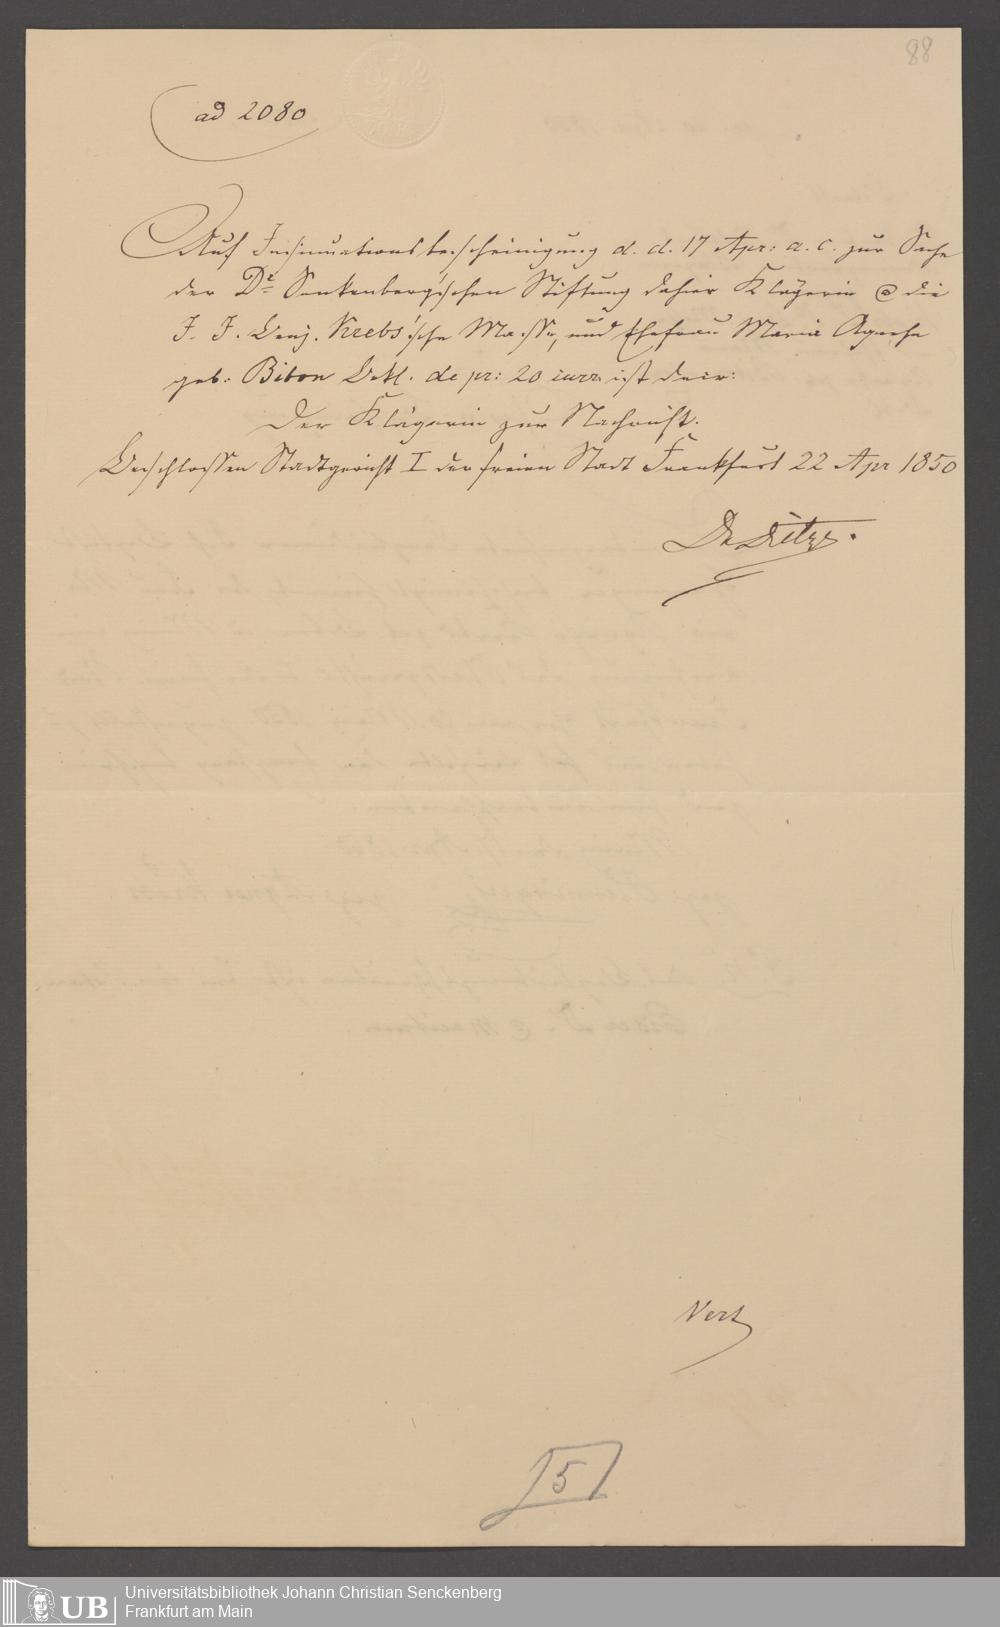 88
ad 2080
Auf Insinuationsbescheinigung d. d. 17 Apr: a. c. zur Sache
der Dr Senkenbergischen Stiftung dahier Klägerin © die
J. J. Benj. Krebs'sche Masse, und Ehefrau Maria Agnese
geb: Bibon Bekl. de pr: 20 curr. ist Decr:
Der Klägerin zur Nachricht.
Beschlossen Stadtgericht I der freien Stadt Frankfurt 22 Apr 1850
Dr
5
UB
Universitätsbibliothek Johann Christian Senckenberg
Frankfurt am Main